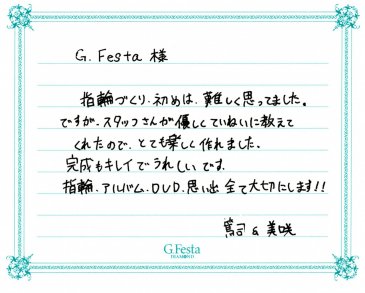 G. Festa 様
指輪づくり、初めは、難しく思ってました。
ですが、スタッフさんが優しくていねいに教えて
くれたので、とても楽しく作れました、
完成もキレイでうれしいです。
指輪、アルバム、DVD、思い出全て大切にします!!
篤司 & 美咲
G.Festa
DIAMOND